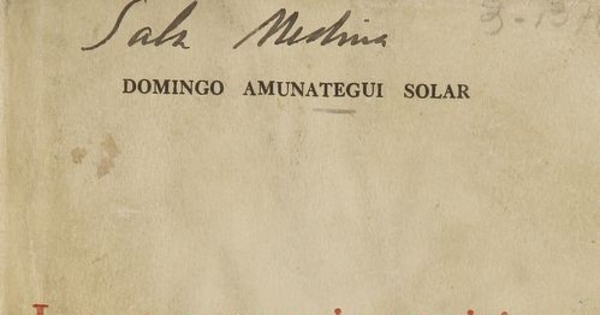 Sala Medina
DOMINGO AMUNATEGUI SOLAR